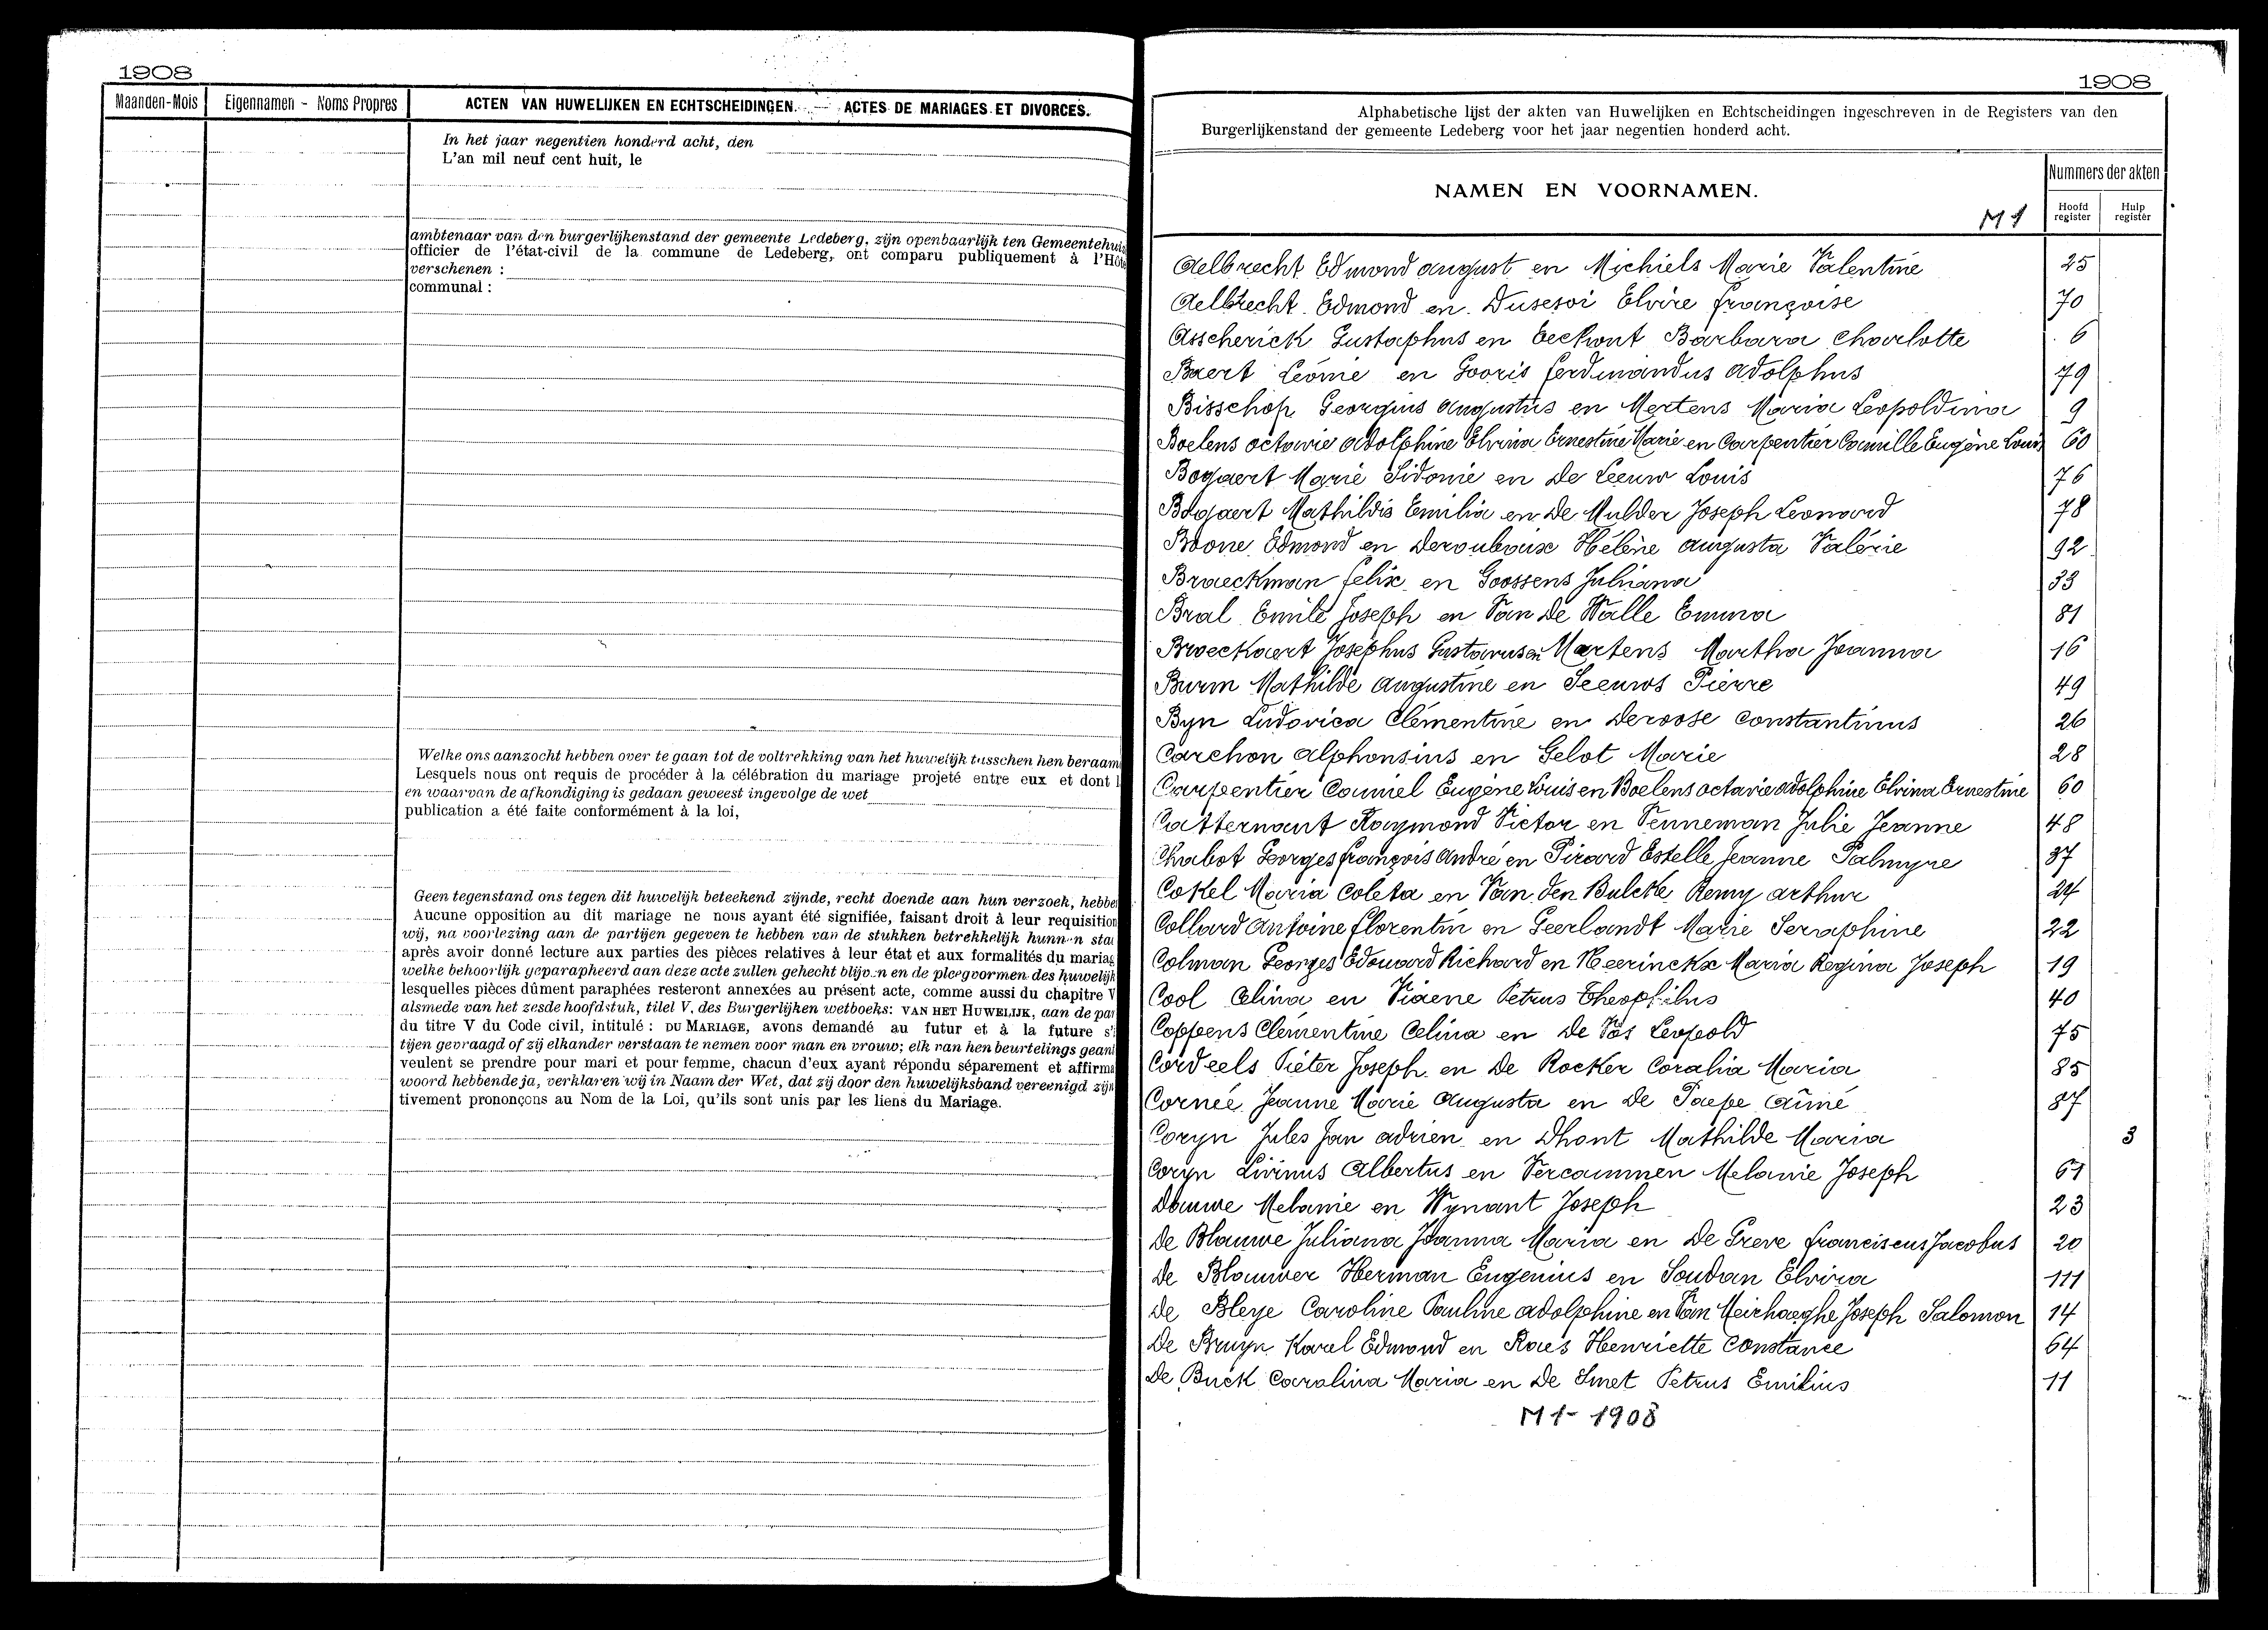 1908
Maanden-Mois
Eigennamen - Noms Propres
ACTEN VAN HUWELIJKEN EN ECHTSCHEIDINGEN. — ACTES DE MARIAGES ET DIVORCES.
In het jaar negentien honderd acht, den
L'an mil neuf cent huit, le
ambtenaar van den burgerlijkenstand der gemeente Ledeberg, zijn openbaarlijk ten Gemeentehuis
officier de l'état-civil de la commune de Ledeberg, ont comparu publiquement à l'Hôt
verschenen :
communal :
Welke ons aanzocht hebben over te gaan tot de voltrekking van het huwelijk tusschen hen beraam
Lesquels nous ont requis de procéder à la célébration du mariage projeté entre eux et dont l
en waarvan de afkondiging is gedaan geweest ingevolge de wet
publication a été faite conformément à la loi,
Geen tegenstand ons tegen dit huwelijk beteekend zijnde, recht doende aan hun verzoek, hebbe
Aucune opposition au dit mariage ne nous ayant été signifiée, faisant droit à leur requisition
wij, na voorlezing aan de partijen gegeven te hebben van de stukken betrekkelijk hunnen sta
après avoir donné lecture aux parties des pièces relatives à leur état et aux formalités du mariag
welke behoorlijk geparapheerd aan deze acte zullen gehecht blijven en de pleegvormen des huwelijk
lesquelles pièces dûment paraphées resteront annexées au présent acte, comme aussi du chapitre V
alsmede van het zesde hoofdstuk, titel V, des Burgerlijken wetboeks: VAN HET HUWELIJK, aan de par
du titre V du Code civil, intitulé : DU MARIAGE, avons demandé au futur et à la future s'i
tijen gevraagd of zij elkander verstaan te nemen voor man en vrouw; elk van hen beurtelings geant
veulent se prendre pour mari et pour femme, chacun d'eux ayant répondu séparement et affirma
woord hebbende ja, verklaren wij in Naam der Wet, dat zij door den huwelijksband vereenigd zijn
tivement prononçons au Nom de la Loi, qu'ils sont unis par les liens du Mariage.
1908
Alphabetische lijst der akten van Huwelijken en Echtscheidingen ingeschreven in de Registers van den
Burgerlijkenstand der gemeente Ledeberg voor het jaar negentien honderd acht.
NAMEN EN VOORNAMEN.
M1
Nummers der akten
Hoofd register
Hulp register
Aelbrecht Edmond August en Michiels Marie Valentine 25
Aelbrecht Edmond en Dusesoi Elvire Françoise 70
Asscherick Gustaphus en Eeckhout Barbara Charlotte 6
Baert Léonie en Gooris Ferdinandus Adolphus 79
Bisschop Georgius Augustus en Mertens Maria Leopoldina 9
Boelens Octavie Adolphine Elvina Ernestine Marie en Carpentier Camille Eugène Louis 60
Bogaert Marie Sidonie en De Leeuw Louis 76
Bogaert Mathildis Emilia en De Mulder Joseph Leonard 78
Boone Edmond en Deroubaix Hélène Augusta Valérie 92
Braeckman Felix en Goossens Juliana 33
Bral Emile Joseph en Van de Walle Emma 81
Broeckaert Josephus Gustavus en Martens Martha Joanna 16
Burm Mathilde Augustine en Seeuws Pierre 49
Byn Ludovica Clementine en Deroose Constantinus 26
Carchon Alphonsius en Gelot Marie 28
Carpentier Camiel Eugène Louis en Boelens Octavie Adolphine Elvina Ernestine 60
Catternaut Raymond Victor en Penneman Julie Jeanne 48
Chabot Georges François André en Pirard Estelle Jeanne Palmyre 37
Cokel Maria Coleta en Van den Bulcke Remy Arthur 24
Collard Antoine Florentin en Geerlandt Marie Seraphine 22
Colman Georges Edouard Richard en Heerinckx Maria Regina Joseph 19
Cool Celina en Viaene Petrus Theophilus 40
Coppens Clementine Celina en De Vos Leopold 75
Cordeels Pieter Joseph en De Rocker Coralia Maria 85
Cornée Jeanne Marie Augusta en De Paepe Aimé 87
Coryn Jules Jan Adrien en Dhont Mathilde Maria 3
Coryn Livinus Albertus en Vercammen Melanie Joseph 67
Dauwe Melanie en Wynant Joseph 23
De Blauwe Juliana Joanna Maria en De Greve Franciscus Jacobus 20
De Blauwer Herman Eugenius en Soudan Elvira 111
De Bleye Caroline Pauline Adolphine en Van Meirhaeghe Joseph Salomon 14
De Bruyn Karel Edmond en Raes Henriette Constance 64
De Buck Carolina Maria en De Smet Petrus Emilius 11
M1- 1908